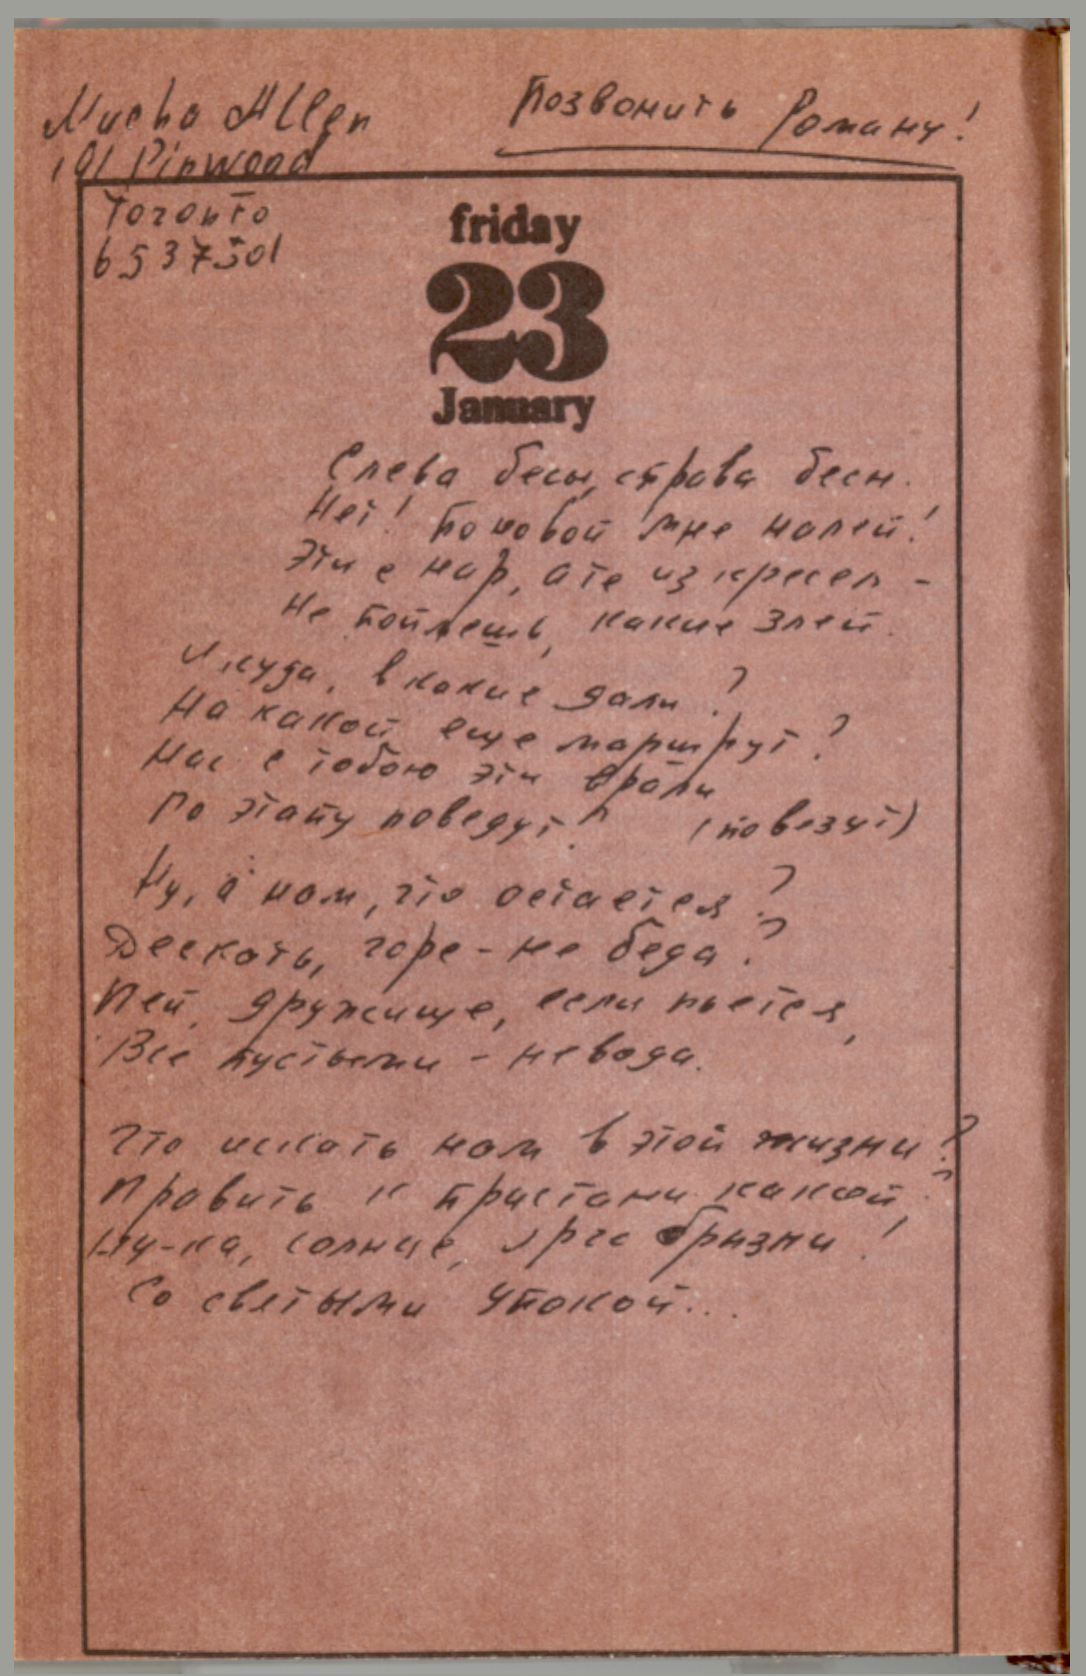 Misha Allen
Позвонить Роману!
101 Pinwood
Toronto
6537501
friday
23
January
Слева бесы, справа бесы.
Нет! По новой мне налей!
Эти с нар, а те из кресел -
Не поймешь, какие злей.
И куда, в какие дали?
На какой еще маршрут?
Нас с тобою эти врали
По этапу поведут? (повезут)
Ну, а нам, что остается?
Дескать, горе - не беда?
Пей, дружище, если пьется,
Все пустыми - невода.
Что искать нам в этой жизни?
Править к пристани какой?
Ну-ка, солнце, ярче брызни!
Со святыми упокой...